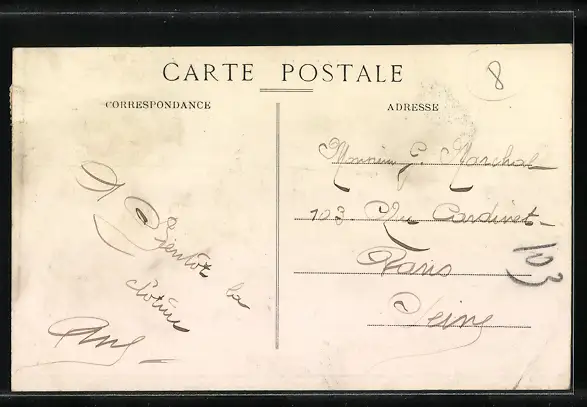 CARTE POSTALE
8
CORRESPONDANCE
ADRESSE
A Bientôt la
clôture
Monsieur G. Marchal
103 Rue Cardinet
Paris
Seine
103